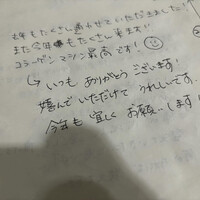 去年もたくさん通わせていただきました!
また今年もたくさん来ます!!
コラーゲンマシン最高です!
→ いつもありがとうございます!
喜んでいただけて うれしいです。
今年も 宜しく お願いします!